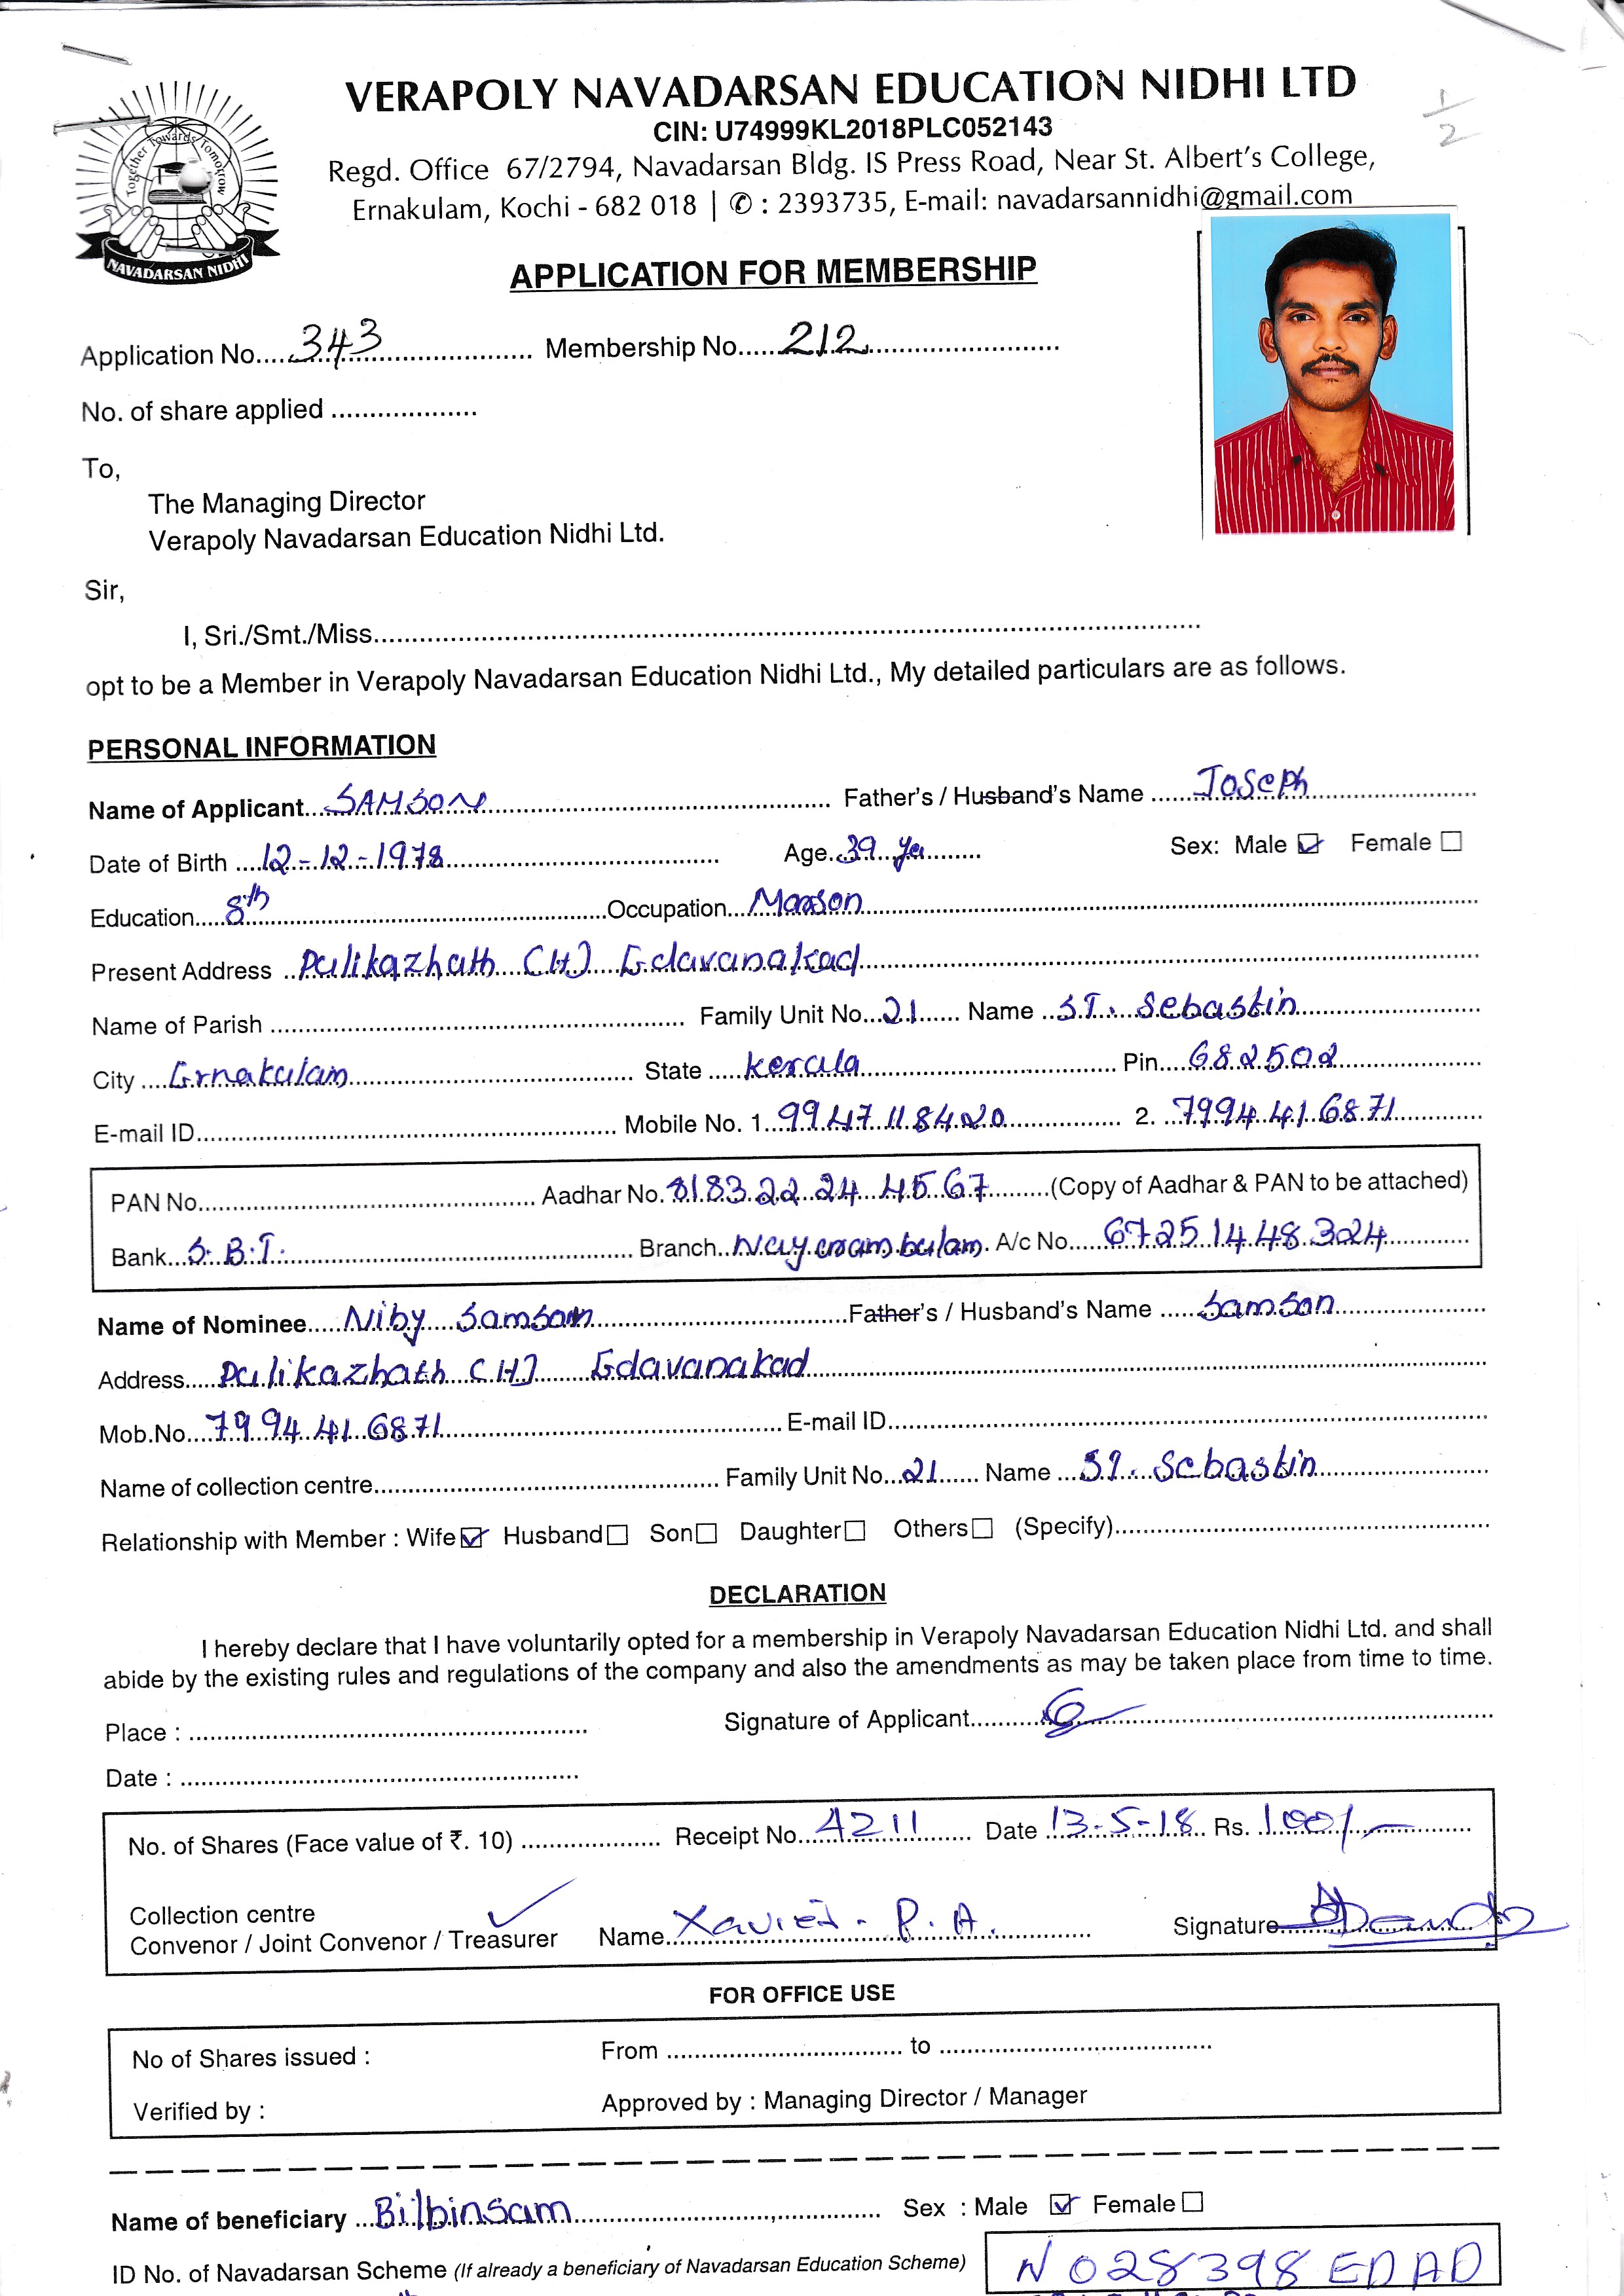 Together Towards Tomorrow
NAVADARSAN NIDHI
VERAPOLY NAVADARSAN EDUCATION NIDHI LTD
CIN: U74999KL2018PLC052143
Regd. Office 67/2794, Navadarsan Bldg. IS Press Road, Near St. Albert's College,
Ernakulam, Kochi - 682 018 | ✆ : 2393735, E-mail: navadarsannidhi@gmail.com
1/2
APPLICATION FOR MEMBERSHIP
Application No....343.... Membership No.....212....
No. of share applied ...................
To,
The Managing Director
Verapoly Navadarsan Education Nidhi Ltd.
Sir,
I, Sri./Smt./Miss..........
opt to be a Member in Verapoly Navadarsan Education Nidhi Ltd., My detailed particulars are as follows.
PERSONAL INFORMATION
Name of Applicant...SAMSON... Father's / Husband's Name ...Joseph...
Date of Birth ...12-12-1978... Age..39 ye... Sex: Male ☑ Female ☐
Education....8th....Occupation...Maason...
Present Address ..Palikazhath (H) Edavanakad...
Name of Parish .......... Family Unit No...21... Name ..ST. Sebastin...
City ...Ernakulam... State ...Kerala... Pin...682502...
E-mail ID.......... Mobile No. 1..9947118420... 2. ..7994416871...
PAN No.......... Aadhar No. 8183 22 24 4567 ...(Copy of Aadhar & PAN to be attached)
Bank...S.B.T.... Branch..Nayarambalam. A/c No....67251448324...
Name of Nominee....Niby Samson....Father's / Husband's Name ....Samson...
Address....Palikazhath (H) Edavanakad...
Mob.No...7994416871... E-mail ID..........
Name of collection centre.......... Family Unit No...21... Name ...ST. Sebastin...
Relationship with Member : Wife ☑ Husband ☐ Son ☐ Daughter ☐ Others ☐ (Specify)..........
DECLARATION
I hereby declare that I have voluntarily opted for a membership in Verapoly Navadarsan Education Nidhi Ltd. and shall
abide by the existing rules and regulations of the company and also the amendments as may be taken place from time to time.
Place : .......... Signature of Applicant..........
Date : ..........
No. of Shares (Face value of ₹. 10) .......... Receipt No...4211... Date 13-5-18 Rs. 100/-
Collection centre
Convenor / Joint Convenor / Treasurer Name..Xavier. P. A. Signature..........
FOR OFFICE USE
No of Shares issued : From .......... to ..........
Verified by : Approved by : Managing Director / Manager
Name of beneficiary ...Bilbinsam... Sex : Male ☑ Female ☐
ID No. of Navadarsan Scheme (If already a beneficiary of Navadarsan Education Scheme) N 028398 EDAD